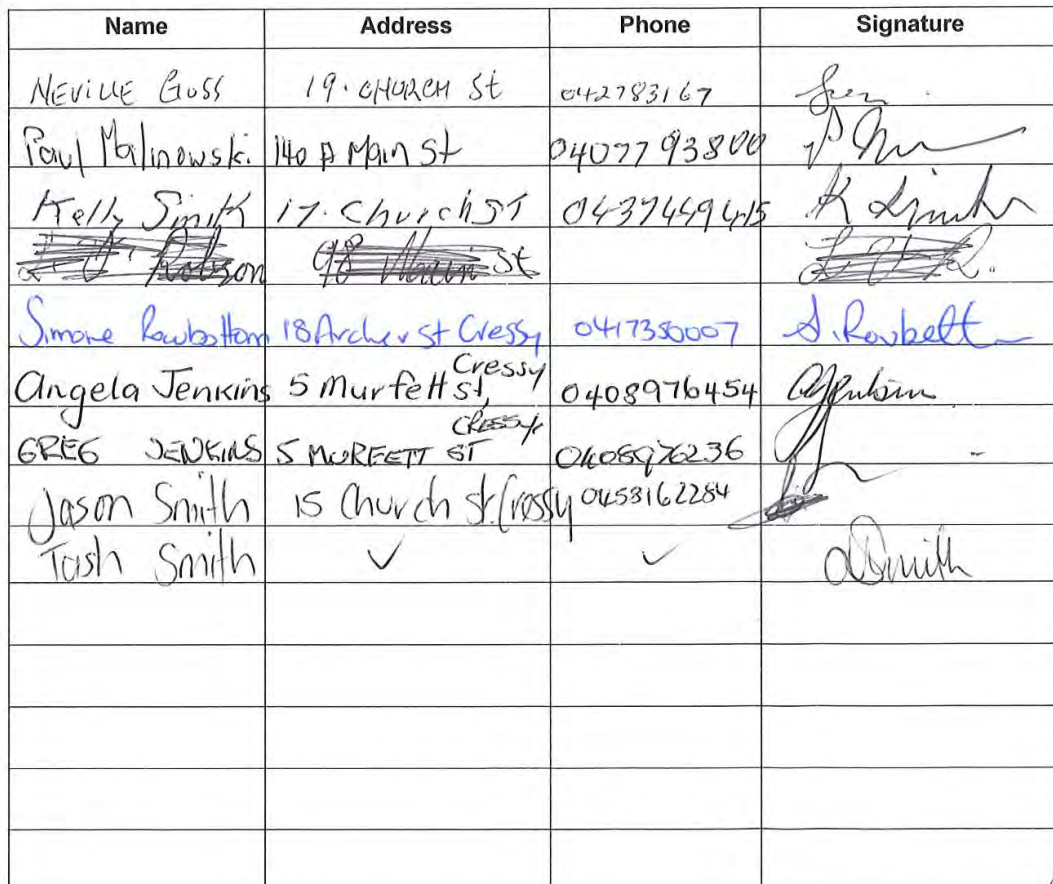 Name Address Phone Signature
NEVILLE GOSS 19. CHURCH St 042783167
Paul Malinowski. 140 A Main St 0407793800
Kelly Smith 17. Church ST 0437449415 K Smith
Robson 98 Main St
Simone Rowbottom 18 Archer St Cressy 0417350007 S. Rowbott
Angela Jenkins 5 Murfett St, Cressy 0408976454 AJenkins
GREG JENKINS 5 MURFETT ST CRESSY 0408976236
Jason Smith 15 Church St. Cressy 0453162284
Tash Smith ✓ ✓ Smith